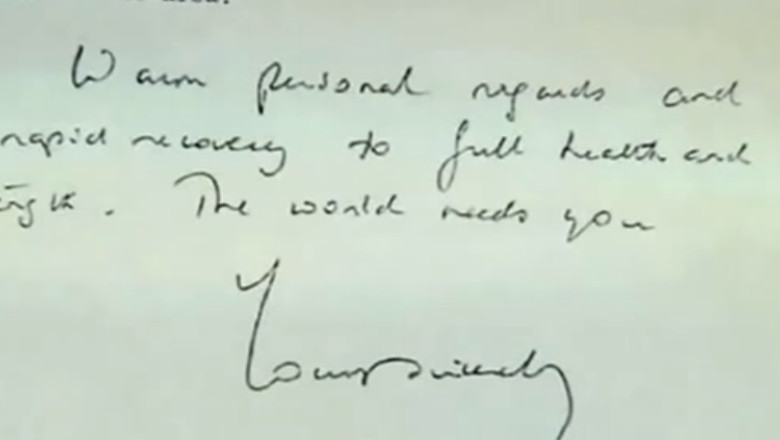 Warm personal regards and
rapid recovery to full health and
The world needs you
Yours sincerely